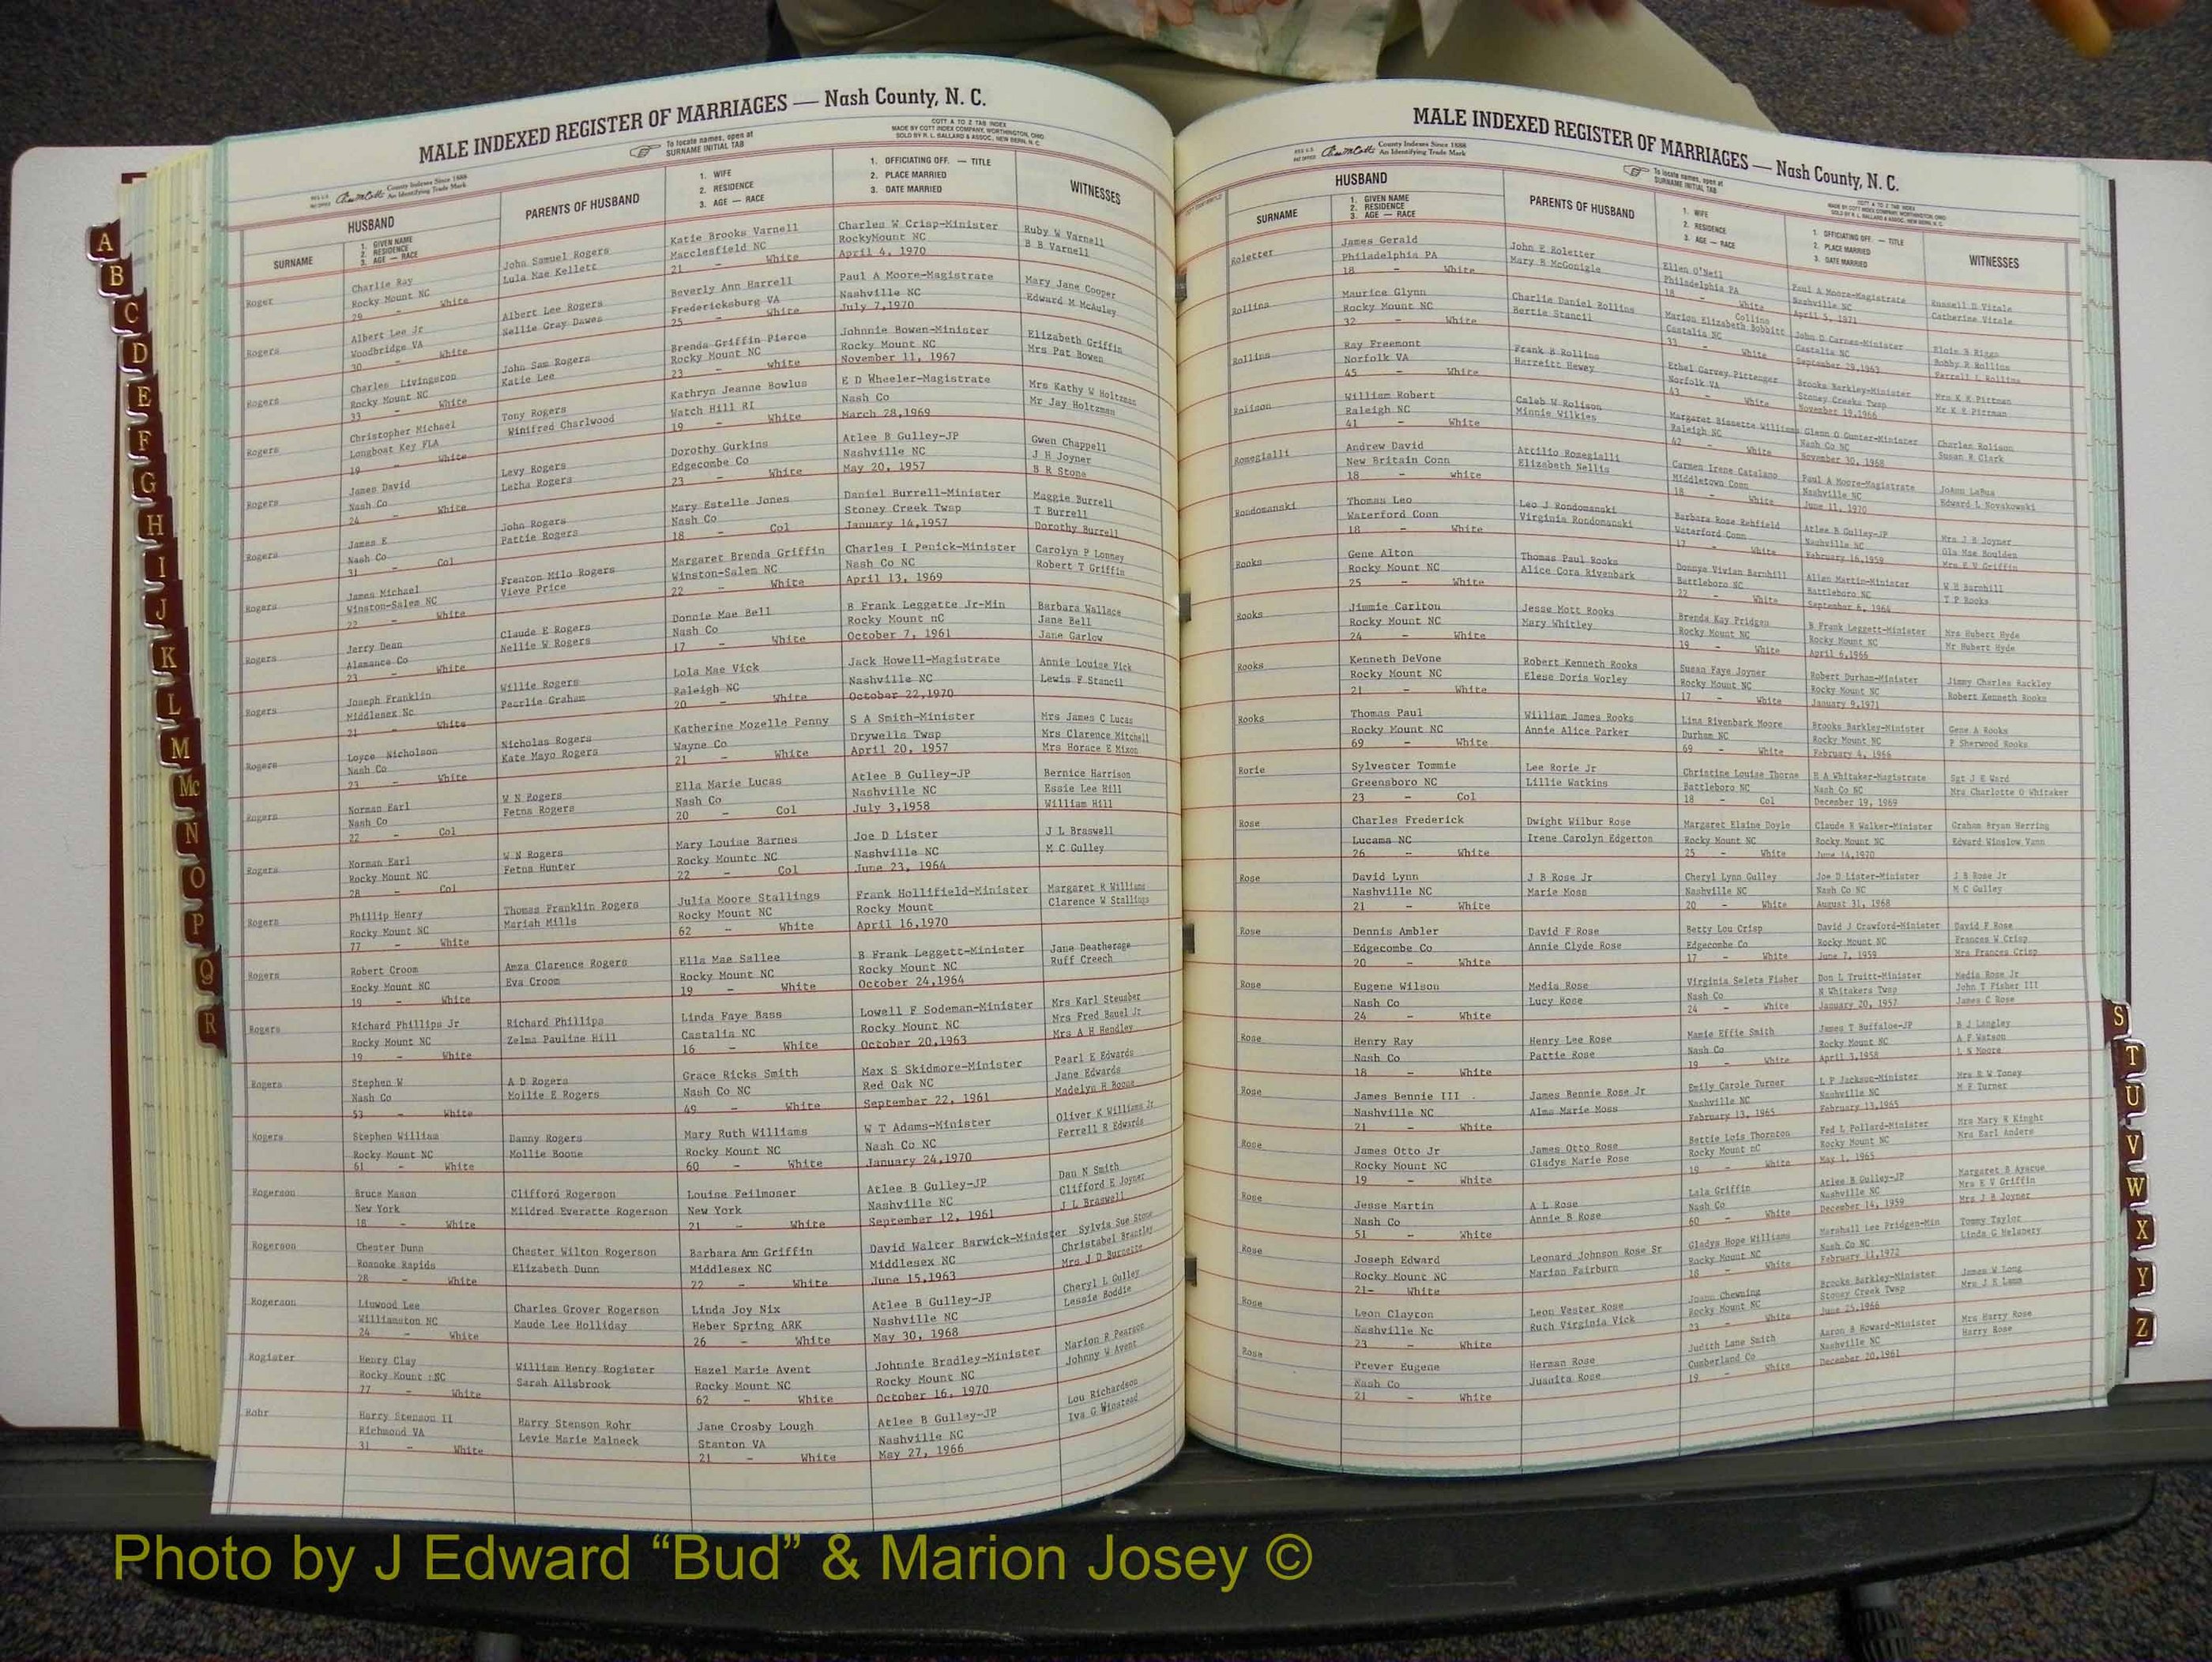 MALE INDEXED REGISTER OF MARRIAGES — Nash County, N. C.
To locate names, open at
SURNAME INITIAL TAB
COTT A TO Z TAB INDEX
MADE BY COTT INDEX COMPANY, WORTHINGTON, OHIO
SOLD BY R. L. BALLARD & ASSOC., NEW BERN, N. C.
County Indexes Since 1888
An Identifying Trade Mark
HUSBAND
SURNAME
1. GIVEN NAME
2. RESIDENCE
3. AGE — RACE
PARENTS OF HUSBAND
1. WIFE
2. RESIDENCE
3. AGE — RACE
1. OFFICIATING OFF. — TITLE
2. PLACE MARRIED
3. DATE MARRIED
WITNESSES
Roger Charlie Ray John Samuel Rogers Katie Brooks Varnell Charles W Crisp-Minister Ruby W Varnell
Rocky Mount NC Lula Mae Kellett Macclesfield NC RockyMount NC B B Varnell
29 - White 21 - White April 4, 1970
Rogers Albert Lee Jr Albert Lee Rogers Beverly Ann Harrell Paul A Moore-Magistrate Mary Jane Cooper
Woodbridge VA Nellie Gray Dawes Fredericksburg VA Nashville NC Edward M McAuley
30 - White 25 - White July 7,1970
Rogers Charles Livingston John Sam Rogers Brenda Griffin Pierce Johnnie Bowen-Minister Elizabeth Griffin
Rocky Mount NC Katie Lee Rocky Mount NC Rocky Mount NC Mrs Pat Bowen
33 - White 23 - white November 11, 1967
Rogers Christopher Michael Tony Rogers Kathryn Jeanne Bowlus E D Wheeler-Magistrate Mrs Kathy W Holtzman
Longboat Key FLA Winifred Charlwood Watch Hill RI Nash Co Mr Jay Holtzman
19 - White 19 - White March 28,1969
Rogers James David Levy Rogers Dorothy Gurkins Atlee B Gulley-JP Gwen Chappell
Nash Co Letha Rogers Edgecombe Co Nashville NC J H Joyner
24 - White 23 - White May 20, 1957 B R Stone
Rogers James E John Rogers Mary Estelle Jones Daniel Burrell-Minister Maggie Burrell
Nash Co Pattie Rogers Nash Co Stoney Creek Twsp T Burrell
31 - Col 18 - Col January 14,1957 Dorothy Burrell
Rogers James Michael Frenton Milo Rogers Margaret Brenda Griffin Charles I Penick-Minister Carolyn P Lonney
Winston-Salem NC Vieve Price Winston-Salem NC Nash Co NC Robert T Griffin
22 - White 22 - White April 13, 1969
Rogers Jerry Dean Claude E Rogers Donnie Mae Bell B Frank Leggette Jr-Min Barbara Wallace
Alamance Co Nellie W Rogers Nash Co Rocky Mount nC Jane Bell
23 - White 17 - White October 7, 1961 Jane Garlow
Rogers Joseph Franklin Willie Rogers Lola Mae Vick Jack Howell-Magistrate Annie Louise Vick
Middlesex Nc Pearlie Graham Raleigh NC Nashville NC Lewis F Stancil
21 - White 20 - White October 22,1970
Rogers Loyce Nicholson Nicholas Rogers Katherine Mozelle Penny S A Smith-Minister Mrs James C Lucas
Nash Co Kate Mayo Rogers Wayne Co Drywells Twsp Mrs Clarence Mitchell
23 - White 21 - White April 20, 1957 Mrs Horace E Mixon
Rogers Norman Earl W N Rogers Ella Marie Lucas Atlee B Gulley-JP Bernice Harrison
Nash Co Fetna Rogers Nash Co Nashville NC Essie Lee Hill
22 - Col 20 - Col July 3,1958 William Hill
Rogers Norman Earl W N Rogers Mary Louise Barnes Joe D Lister J L Braswell
Rocky Mount NC Fetna Hunter Rocky Mountc NC Nashville NC M C Gulley
28 - Col 22 - Col June 23, 1964
Rogers Phillip Henry Thomas Franklin Rogers Julia Moore Stallings Frank Hollifield-Minister Margaret R Williams
Rocky Mount NC Mariah Mills Rocky Mount NC Rocky Mount Clarence W Stallings
77 - White 62 - White April 16,1970
Rogers Robert Croom Amza Clarence Rogers Ella Mae Sallee B Frank Leggett-Minister Jane Deatherage
Rocky Mount NC Eva Croom Rocky Mount NC Rocky Mount NC Ruff Creech
19 - White 19 - White October 24,1964
Rogers Richard Phillips Jr Richard Phillips Linda Faye Bass Lowell F Sodeman-Minister Mrs Karl Steusber
Rocky Mount NC Zelma Pauline Hill Castalia NC Rocky Mount NC Mrs Fred Bauel Jr
19 - White 16 - White October 20,1963 Mrs A H Hendley
Rogers Stephen W A D Rogers Grace Ricks Smith Max S Skidmore-Minister Pearl E Edwards
Nash Co Mollie E Rogers Nash Co NC Red Oak NC Jane Edwards
53 - White 49 - White September 22, 1961 Madelyn H Boone
Rogers Stephen William Danny Rogers Mary Ruth Williams W T Adams-Minister Oliver K Williams Jr
Rocky Mount NC Mollie Boone Rocky Mount NC Nash Co NC Ferrell R Edwards
61 - White 60 - White January 24,1970
Rogerson Bruce Mason Clifford Rogerson Louise Feilmoser Atlee B Gulley-JP Dan N Smith
New York Mildred Everette Rogerson New York Nashville NC Clifford E Joyner
18 - White 21 - White September 12, 1961 J L Braswell
Rogerson Chester Dunn Chester Wilton Rogerson Barbara Ann Griffin David Walter Barwick-Minister Sylvia Sue Stone
Roanoke Rapids Elizabeth Dunn Middlesex NC Middlesex NC Christabel Brantley
28 - White 22 - White June 15,1963 Mrs J D Burnette
Rogerson Linwood Lee Charles Grover Rogerson Linda Joy Nix Atlee B Gulley-JP Cheryl L Gulley
Williamston NC Maude Lee Holliday Heber Spring ARK Nashville NC Lessie Boddie
24 - White 26 - White May 30, 1968
Rogister Henry Clay William Henry Rogister Hazel Marie Avent Johnnie Bradley-Minister Marion R Pearson
Rocky Mount :NC Sarah Allsbrook Rocky Mount NC Rocky Mount NC Johnny W Avent
77 - White 62 - White October 16, 1970
Rohr Harry Stenson II Harry Stenson Rohr Jane Crosby Lough Atlee B Gulley-JP Lou Richardson
Richmond VA Levie Marie Malneck Stanton VA Nashville NC Iva G Winstead
31 - White 21 - White May 27, 1966
MALE INDEXED REGISTER OF MARRIAGES — Nash County, N. C.
To locate names, open at
SURNAME INITIAL TAB
COTT A TO Z TAB INDEX
MADE BY COTT INDEX COMPANY, WORTHINGTON, OHIO
SOLD BY R. L. BALLARD & ASSOC., NEW BERN, N. C.
County Indexes Since 1888
An Identifying Trade Mark
HUSBAND
SURNAME
1. GIVEN NAME
2. RESIDENCE
3. AGE — RACE
PARENTS OF HUSBAND
1. WIFE
2. RESIDENCE
3. AGE — RACE
1. OFFICIATING OFF. — TITLE
2. PLACE MARRIED
3. DATE MARRIED
WITNESSES
Roletter James Gerald John E Roletter Ellen O'Neil Paul A Moore-Magistrate Russell D Vitale
Philadelphia PA Mary B McGonigle Philadelphia PA Nashville NC Catherine Vitale
18 - White 18 - White April 5, 1971
Rollins Maurice Glynn Charlie Daniel Rollins Marion Elizabeth Bobbitt Collins John D Carnes-Minister Elois B Riggs
Rocky Mount NC Bertie Stancil Castalia NC Castalia NC Bobby R Rollins
32 - White 33 - White September 29,1963 Ferrell L Rollins
Rollins Ray Freemont Frank B Rollins Ethel Garvey Pittenger Brooks Barkley-Minister Mrs K E Pittman
Norfolk VA Harreitt Hewey Norfolk VA Stoney Creeks Twsp Mr K E Pittman
45 - White 43 - White November 19,1966
Rolison William Robert Caleb W Rolison Margaret Bissette Williams Glenn O Gunter-Minister Charles Rolison
Raleigh NC Minnie Wilkies Raleigh NC Nash Co NC Susan R Clark
41 - White 42 - White November 30, 1968
Romegialli Andrew David Attilio Romegialli Carmen Irene Catalano Paul A Moore-Magistrate JoAnn LaBua
New Britain Conn Elizabeth Nellis Middletown Conn Nashville NC Edward L Novakowski
18 - white 18 - White June 11, 1970
Rondomanski Thomas Leo Leo J Rondomanski Barbara Rose Rehfield Atlee B Gulley-JP Mrs J B Joyner
Waterford Conn Virginia Rondomanski Waterford Conn Nashville NC Gla Mae Boulden
18 - White 17 - White February 16,1959 Mrs E V Griffin
Rooks Gene Alton Thomas Paul Rooks Donnye Vivian Barnhill Allen Martin-Minister W E Barnhill
Rocky Mount NC Alice Cora Rivenbark Battleboro NC Battleboro NC T P Rooks
25 - White 22 - White September 6, 1964
Rooks Jimmie Carlton Jesse Mott Rooks Brenda Kay Pridgen B Frank Leggett-Minister Mrs Hubert Hyde
Rocky Mount NC Mary Whitley Rocky Mount NC Rocky Mount NC Mr Hubert Hyde
24 - White 19 - White April 6,1966
Rooks Kenneth DeVone Robert Kenneth Rooks Susan Faye Joyner Robert Durham-Minister Jimmy Charles Rackley
Rocky Mount NC Elese Doris Worley Rocky Mount NC Rocky Mount NC Robert Kenneth Rooks
21 - White 17 - White January 9,1971
Rooks Thomas Paul William James Rooks Lina Rivenbark Moore Brooks Barkley-Minister Gene A Rooks
Rocky Mount NC Annie Alice Parker Durham NC Rocky Mount NC P Sherwood Rooks
69 - White 69 - White February 4, 1966
Rorie Sylvester Tommie Lee Rorie Jr Christine Louise Thorne B A Whitaker-Magistrate Sgt J E Ward
Greensboro NC Lillie Watkins Battleboro NC Nash Co NC Mrs Charlotte O Whitaker
23 - Col 18 - Col December 19, 1969
Rose Charles Frederick Dwight Wilbur Rose Margaret Elaine Doyle Claude R Walker-Minister Graham Bryan Herring
Lucama NC Irene Carolyn Edgerton Rocky Mount NC Rocky Mount NC Edward Winslow Vann
26 - White 25 - White June 14,1970
Rose David Lynn J B Rose Jr Cheryl Lynn Gulley Joe D Lister-Minister J B Rose Jr
Nashville NC Marie Moss Nashville NC Nash Co NC M C Gulley
21 - White 20 - White August 31, 1968
Rose Dennis Ambler David F Rose Betty Lou Crisp David J Crawford-Minister David F Rose
Edgecombe Co Annie Clyde Rose Edgecombe Co Rocky Mount NC Frances W Crisp
20 - White 17 - White June 7, 1959 Mrs Frances Crisp
Rose Eugene Wilson Media Rose Virginia Seleta Fisher Don L Truitt-Minister Media Rose Jr
Nash Co Lucy Rose Nash Co N Whitakers Twsp John T Fisher III
24 - White 24 - White January 20, 1957 James C Rose
Rose Henry Ray Henry Lee Rose Mamie Effie Smith James T Buffaloe-JP B J Langley
Nash Co Pattie Rose Nash Co Rocky Mount NC A F Watson
18 - White 19 - White April 3,1958 L N Moore
Rose James Bennie III James Bennie Rose Jr Emily Carole Turner L P Jackson-Minister Mrs E W Toney
Nashville NC Alma Marie Moss Nashville NC Nashville NC M F Turner
21 - White February 13, 1965 February 13,1965
Rose James Otto Jr James Otto Rose Bettie Lois Thornton Fed L Pollard-Minister Mrs Mary R Kinght
Rocky Mount NC Gladys Marie Rose Rocky Mount nC Rocky Mount NC Mrs Earl Anders
19 - White 19 - White May 1, 1965
Rose Jesse Martin A L Rose Lala Griffin Atlee B Gulley-JP Margaret B Ayscue
Nash Co Annie B Rose Nash Co Nashville NC Mrs E V Griffin
51 - White 60 - White December 14, 1959 Mrs J B Joyner
Rose Joseph Edward Leonard Johnson Rose Sr Gladys Hope Williams Marshall Lee Pridgen-Min Tommy Taylor
Rocky Mount NC Marian Fairburn Rocky Mount NC Nash Co NC Linda G Melanery
21- White 18 - White February 11,1972
Rose Leon Clayton Leon Vester Rose Joann Chewning Brooks Barkley-Minister James W Long
Nashville Nc Ruth Virginia Vick Rocky Mount NC Stoney Creek Twsp Mrs J E Lamm
23 - White 23 - White June 25,1966
Rose Prever Eugene Herman Rose Judith Lane Smith Aaron B Howard-Minister Mrs Harry Rose
Nash Co Juanita Rose Cumberland Co Nashville NC Harry Rose
21 - White 19 - White December 20,1961
A
B
C
D
E
F
G
H
I
J
K
L
M
Mc
N
O
P
Q
R
S
T
U
V
W
X
Y
Z
Photo by J Edward “Bud” & Marion Josey ©